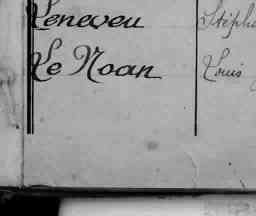 Leneveu Stéph
Le Noan Louis